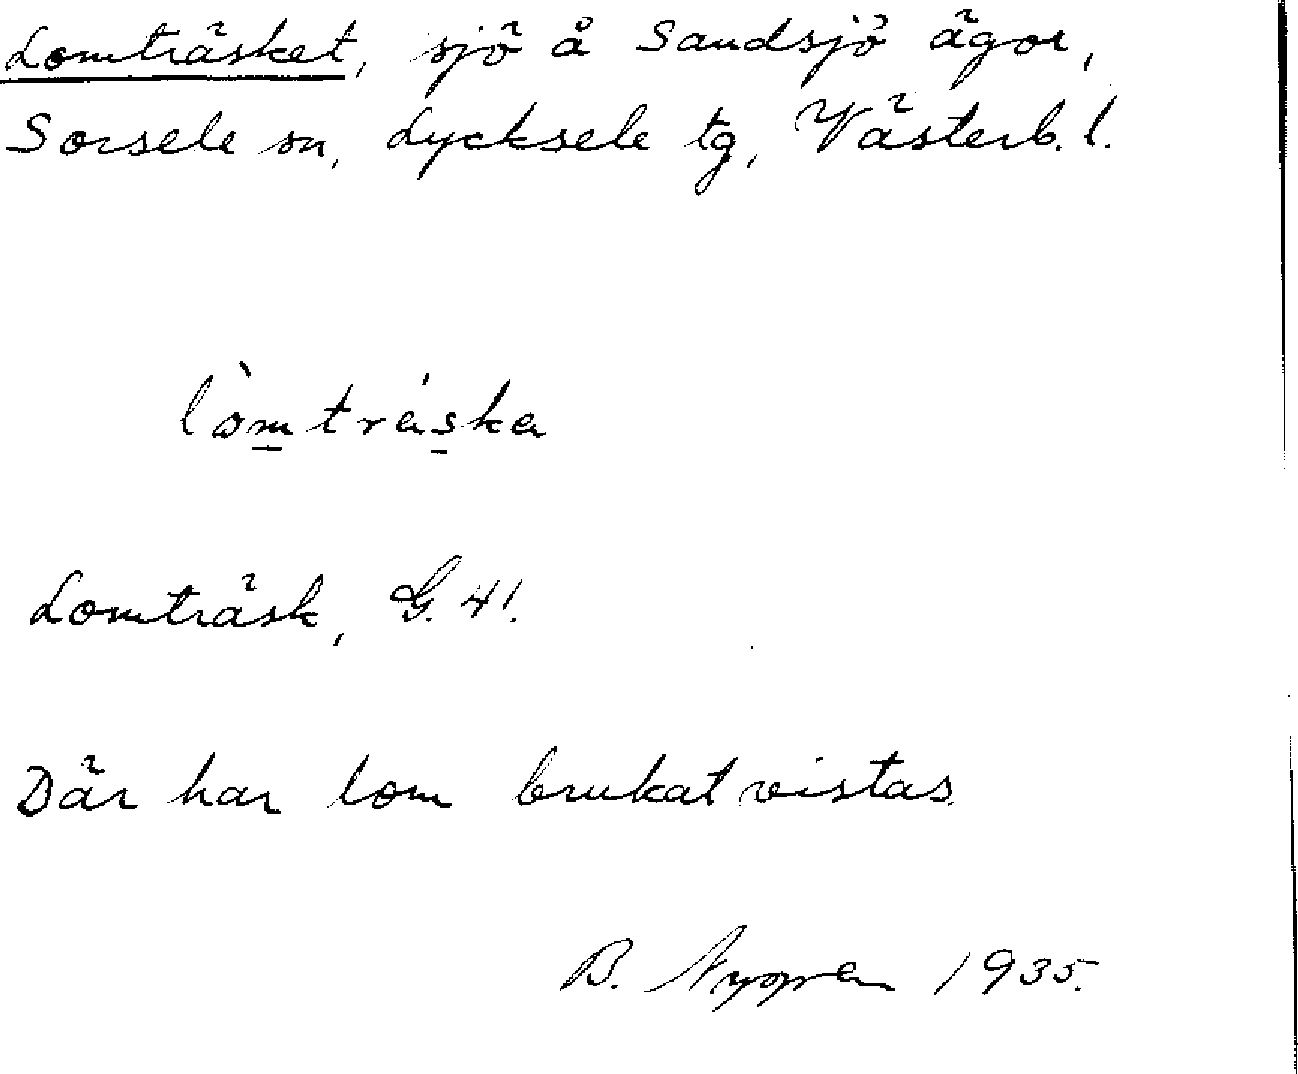 Lomträsket, sjö å Sandsjö ägor,
Sorsele sn, Lycksele tg, Västerb. l.
lòmtráska
Lomträsk, G. 41.
Där har lom brukat vistas
B. 1935.